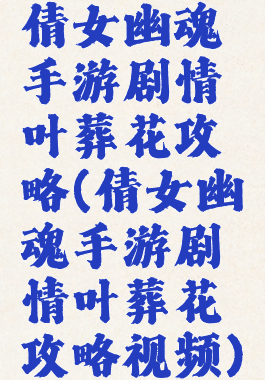 倩女幽魂
手游剧情
叶葬花攻
略(倩女幽
魂手游剧
情叶葬花
攻略视频)